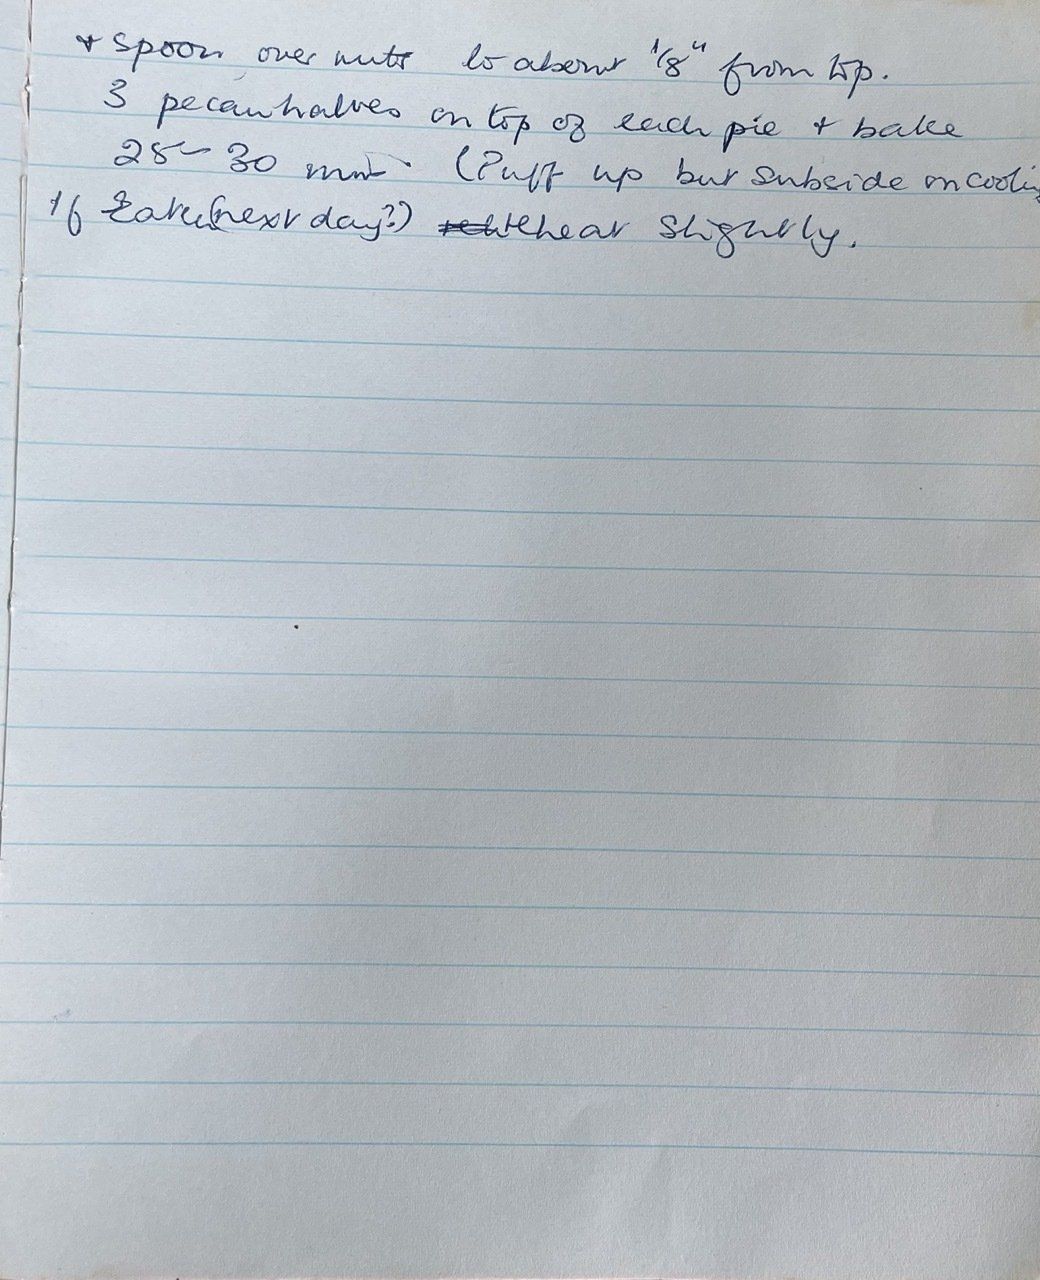 + spoon over nuts to about 1/8" from top.
3 pecan halves on top of each pie + bake
25-30 min. (Puff up but subside on cooling
If (next day?) heat slightly.